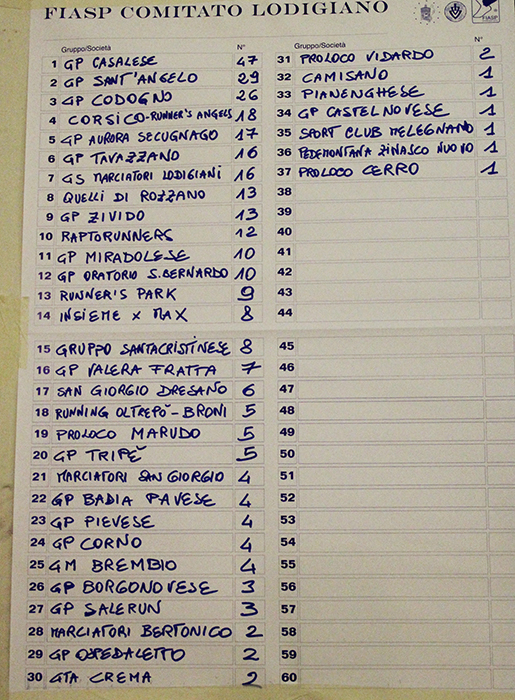 FIASP COMITATO LODIGIANO
FIASP
Gruppo/Società N°
1 GP CASALESE 47
2 GP SANT'ANGELO 29
3 GP CODOGNO 26
4 CORSICO-RUNNER'S ANGELS 18
5 GP AURORA SECUGNAGO 17
6 GP TAVAZZANO 16
7 GS MARCIATORI LODIGIANI 16
8 QUELLI DI ROZZANO 13
9 GP ZIVIDO 13
10 RAPTORUNNERS 12
11 GP MIRADOLESE 10
12 GP ORATORIO S.BERNARDO 10
13 RUNNER'S PARK 9
14 INSIEME X MAX 8
15 GRUPPO SANTACRISTINESE 8
16 GP VALERA FRATTA 7
17 SAN GIORGIO DRESANO 6
18 RUNNING OLTREPÒ - BRONI 5
19 PROLOCO MARUDO 5
20 GP TRIPĚ 5
21 MARCIATORI SAN GIORGIO 4
22 GP BADIA PAVESE 4
23 GP PIEVESE 4
24 GP CORNO 4
25 GM BREMBIO 4
26 GP BORGONOVESE 3
27 GP SALERUN 3
28 MARCIATORI BERTONICO 2
29 GP OSPEDALETTO 2
30 GTA CREMA 2
Gruppo/Società N°
31 PROLOCO VIDARDO 2
32 CAMISANO 1
33 PIANENGHESE 1
34 GP CASTELNOVESE 1
35 SPORT CLUB MELEGNANO 1
36 PEDEMONTANA ZINASCO NUOVO 1
37 PROLOCO CERRO 1
38
39
40
41
42
43
44
45
46
47
48
49
50
51
52
53
54
55
56
57
58
59
60